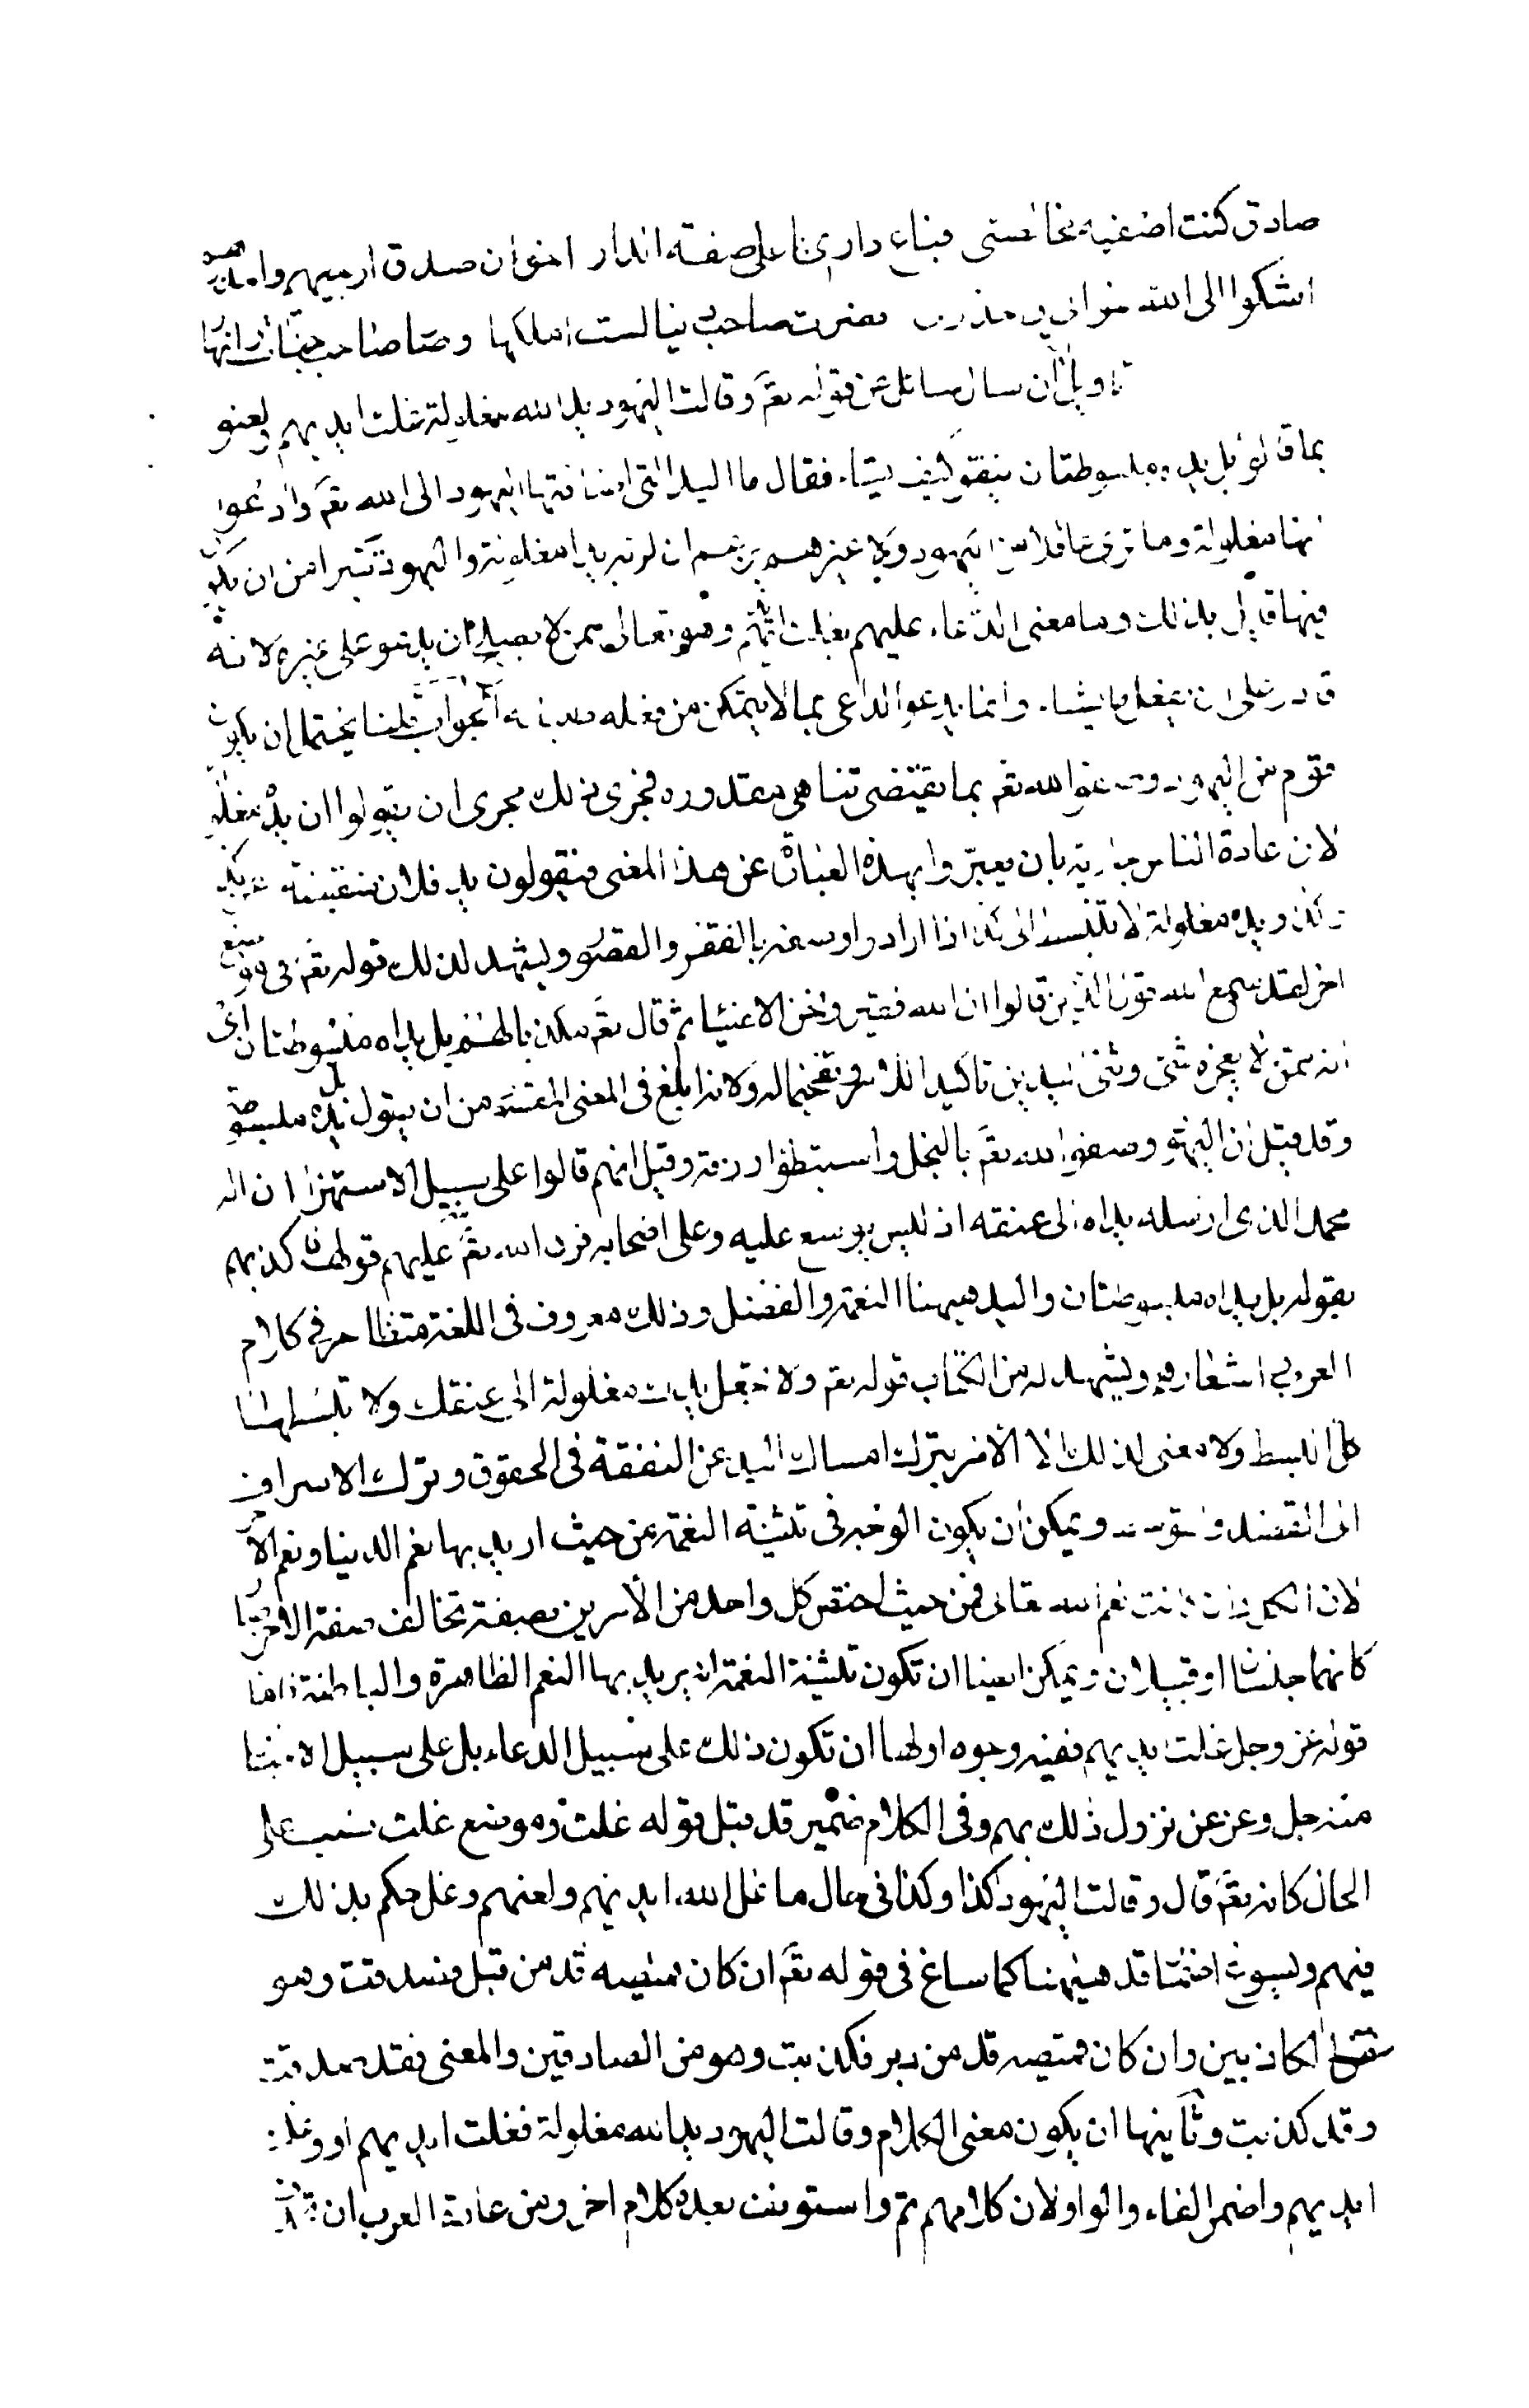 صادق كنت اصفيه مخالصتى فباع دارى بنا على صفة الدار اخوان صدق ارجيهم وامدحهم
اشكوا الى الله خوانى فصرت صاحب دنيا لست املكها وصا صاحب جنات وانهار
تاويل ان سال سائل عن قوله تعم وقالت اليهود يد الله مغلولة غلت ايديهم ولعنو
بما قالو بل يداه مبسوطتان ينفق كيف يشاء فقال ما اليد التى اضافتها اليهود الى الله تعم وادعوا
انها مغلولة وما نرى عاقلا من اليهود ولا غيرهم يزعم ان لربه يدا مغلولة واليهود تتبرا من ان يكون
فيها قايل بذلك وما معنى الدعاء عليهم بغلت ايديهم وهو تعالى ممن لا يصح ان يدعو على غيره لانه
قادر على ان يفعل ما يشاء وانما يدعوا الداعى بما لا يتمكن من فعله الجواب قلنا يحتمل ان يكون
قوم من اليهود وصفوا الله تعم بما يقتضى تناهى مقدوره فجرى ذلك مجرى ان يقولوا ان يده مغلولة
لان عادة الناس جارية بان يعبروا بهذه العبارة عن هذا المعنى فيقولون يد فلان منقبضة عن كذا
وكذا ويده مغلولة لا تنبسط الى كذا اذا ارادوا وصفه بالفقر والقصور ويشهد لذلك قوله تعم فى موضع
اخر لقد سمع الله قول الذين قالوا ان الله فقير ونحن الاغنياء ثم قال تعم مكذبا لهم بل يداه مبسوطتان اى
انه ممن لا يعجزه شئ وثنى اليدين تاكيدا للامر وتفخيما له ولانه ابلغ فى المعنى المقصود من ان يقول بل يده مبسوطة
وقد قيل ان اليهود وصفوا الله تعم بالبخل واستبطؤا رزقه وقيل انهم قالوا على سبيل الاستهزا ان اله
محمد الذى ارسله يداه الى عنقه اذ ليس يوسع عليه وعلى اصحابه فرد الله تعم عليهم قولهم وكذبهم
بقوله بل يداه مبسوطتان واليد هيهنا النعمة والفضل وذلك معروف فى اللغة متظاهر فى كلام
العرب واشعارهم ويشهد له من الكتاب قوله تعم ولا تجعل يدك مغلولة الى عنقك ولا تبسطها
كل البسط ولا معنى لذلك الا الامر بترك امساك اليد عن النفقة فى الحقوق وترك الاسراف
الى القصد والتوسط ويمكن ان يكون الوجه فى تثنية النعمة من حيث اريد بها نعم الدنيا ونعم الاخرة
لان الكل وان كانت نعم الله تعالى فمن حيث اختص كل واحد من الامرين بصفة تخالف صفة الاخر صارا
كانهما جنسان او قبيلان ويمكن ايضا ان تكون تثنية النعمة انه يريد بها النعم الظاهرة والباطنة فاما
قوله عز وجل غلت ايديهم ففيه وجوه اولها ان تكون ذلك على سبيل الدعاء بل على سبيل الاخبار
منه جل وعز عن نزول ذلك بهم وفى الكلام ضمير قد قبل قوله غلت وموضع غلت نصب على
الحال كانه تعم قال وقالت اليهود كذا وكذا فى حال ما غل الله ايديهم ولعنهم وغل حكم بذلك
فيهم ويسوغ اضمار قد هيهنا كما ساغ فى قوله تعم ان كان قميصه قد من قبل فصدقت وهو
من الكاذبين وان كان قميصه قد من دبر فكذبت وهو من الصادقين والمعنى فقد صدقت
وقد كذبت وثانيها ان يكون معنى الكلام وقالت اليهود يد الله مغلولة فغلت ايديهم او وغلت
ايديهم واضمر الفاء والواو لان كلامهم تم واستونف بعده كلام اخر ومن عادة العرب ان